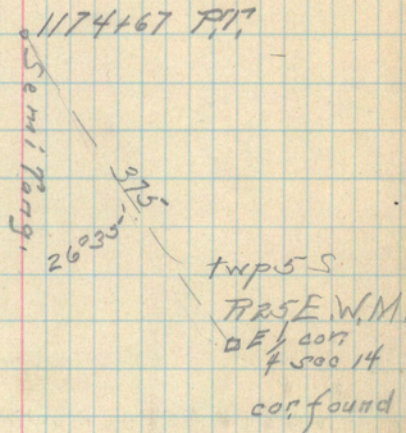 1174+67 P.T.
Semi Tang.
375
26°35'
twp 5 S
R25E. W.M.
E 1/4 cor.
sec 14
cor. found